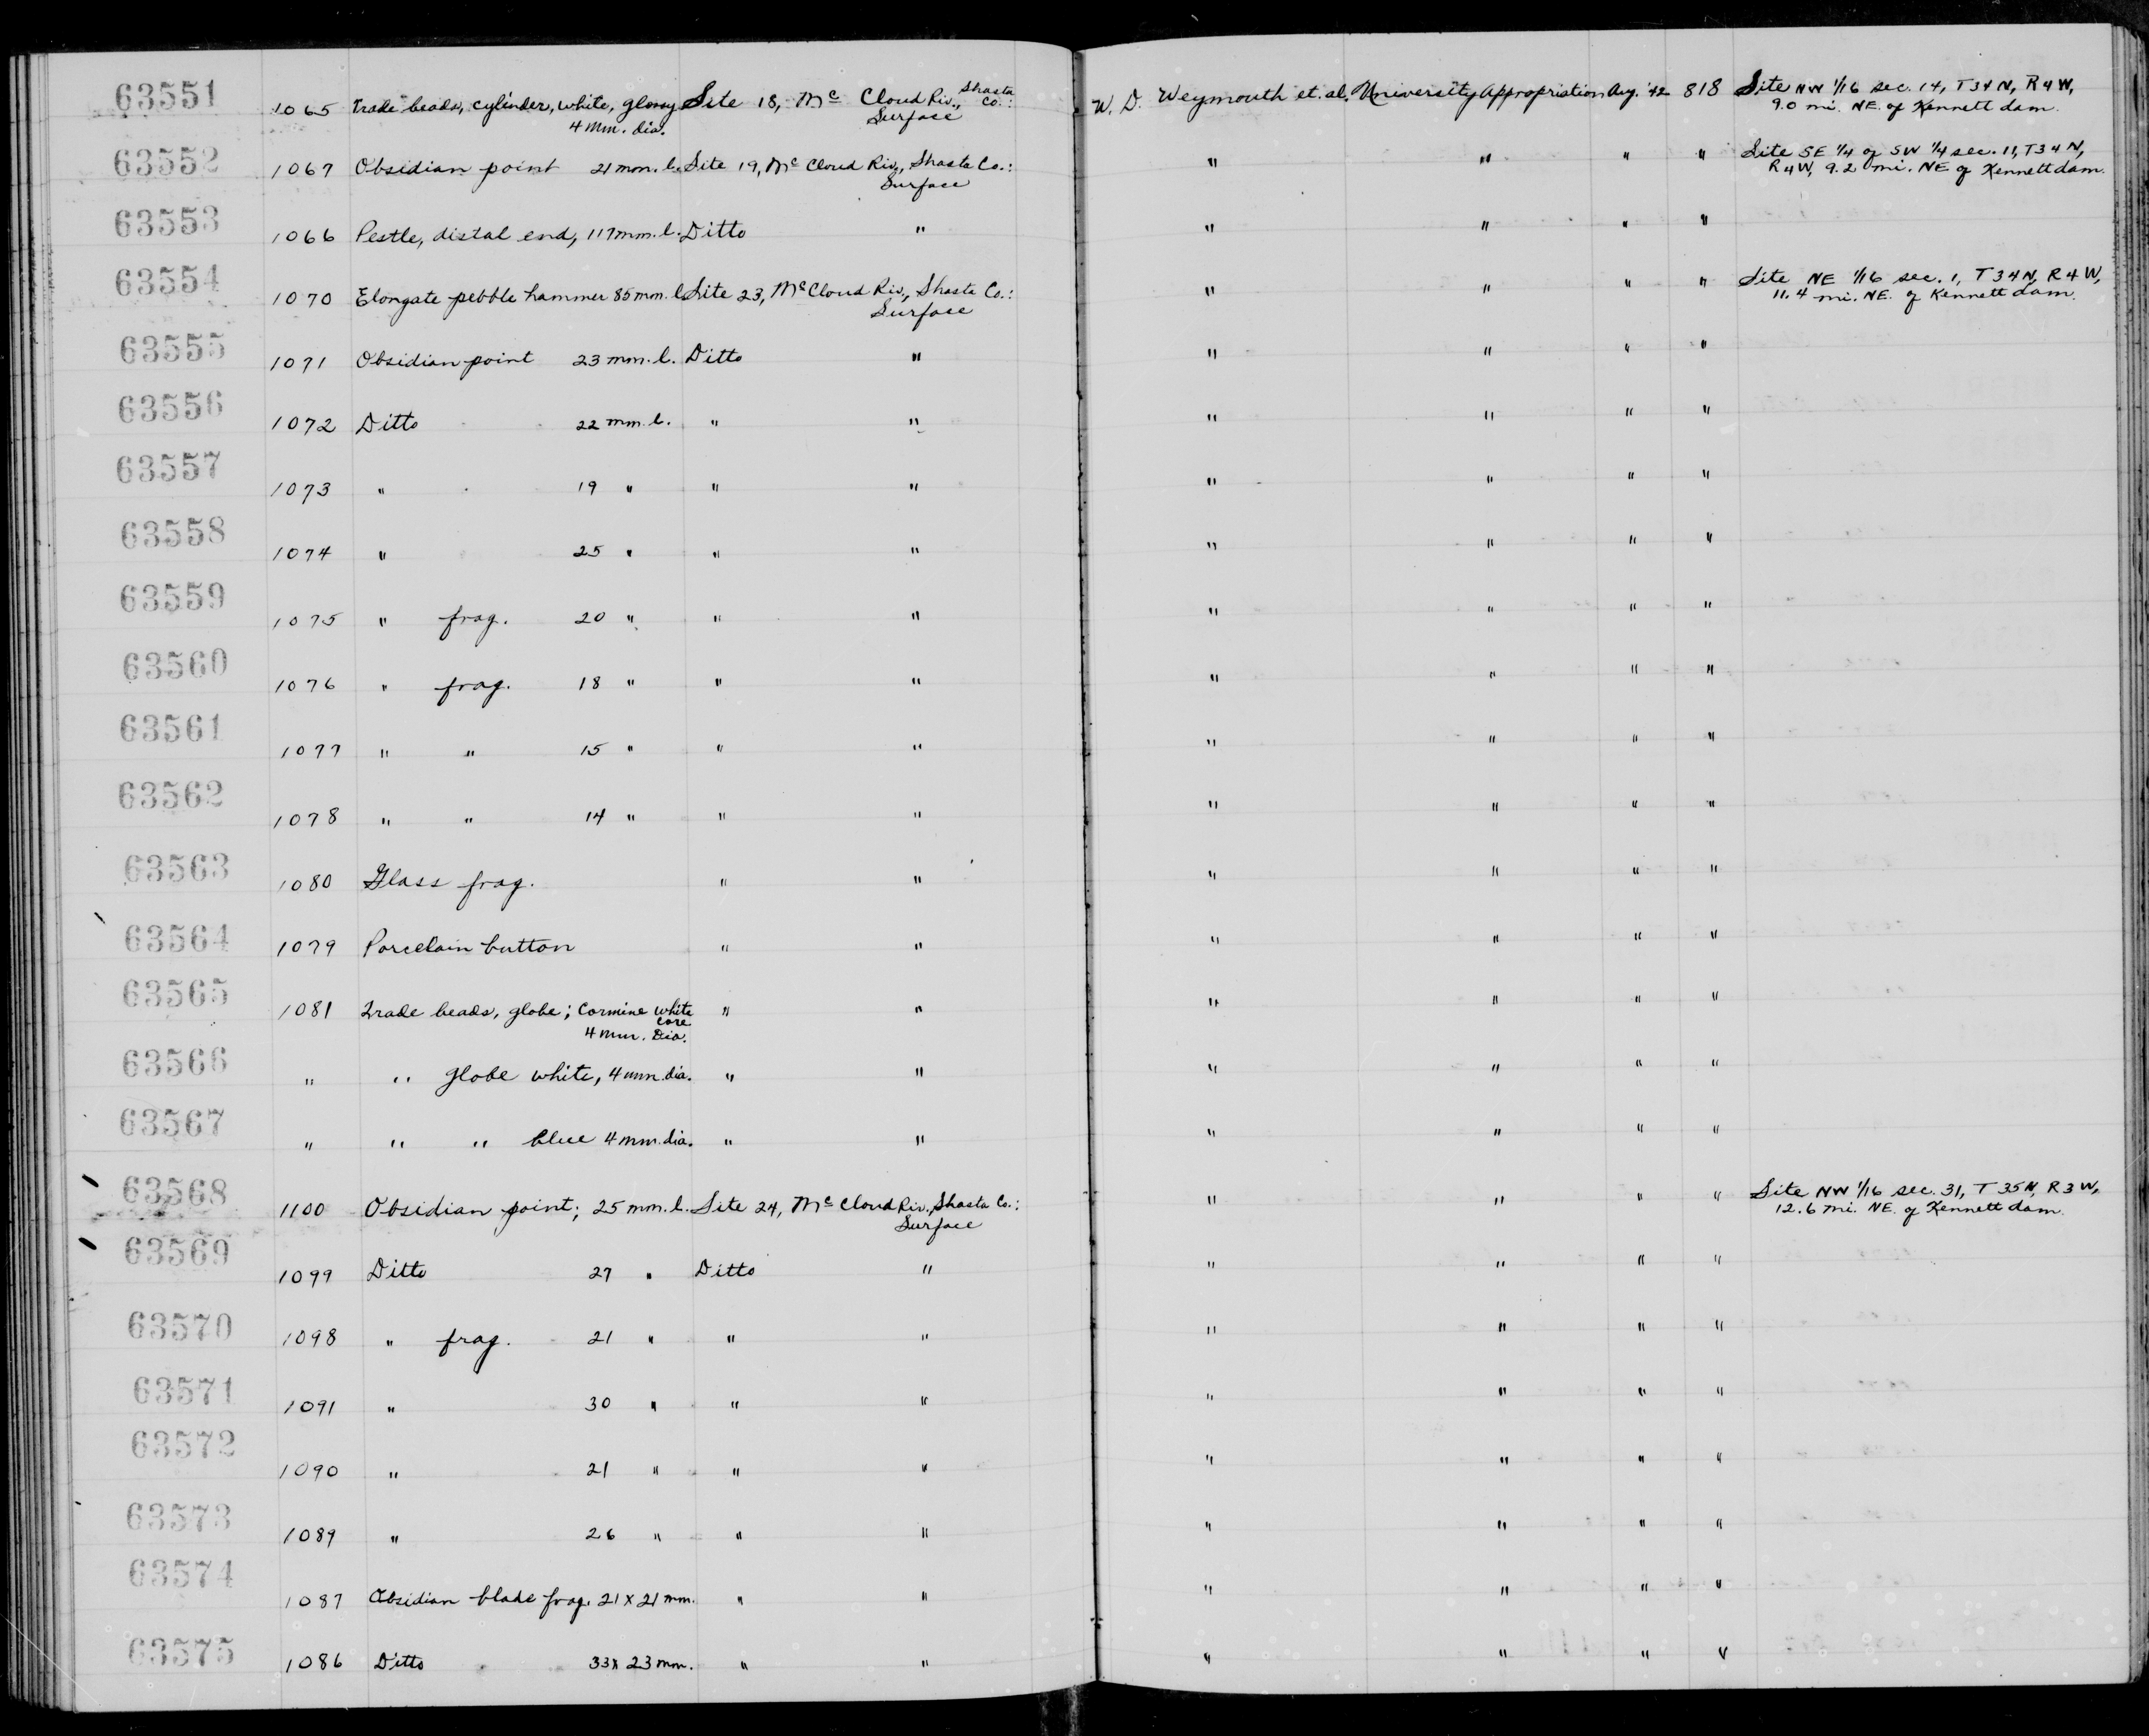 63551 1065 Trade beads, cylinder, white, glossy 4 mm. dia. Site 18, Mc Cloud Riv., Shasta Co.: Surface W. D. Weymouth et. al. University Appropriation Aug. '42 818 Site NW 1/16 sec. 14, T34N, R4W, 9.0 mi. NE. of Kennett dam.
63552 1067 Obsidian point 21 mm. l. Site 19, Mc Cloud Riv., Shasta Co.: Surface " " " " Site SE 1/4 of SW 1/4 sec. 11, T34N, R4W, 9.2 mi. NE of Kennett dam.
63553 1066 Pestle, distal end, 117 mm. l. Ditto " " " " "
63554 1070 Elongate pebble hammer 85 mm. l. Site 23, Mc Cloud Riv., Shasta Co.: Surface " " " " Site NE 1/16 sec. 1, T34N, R4W, 11.4 mi. NE. of Kennett dam.
63555 1071 Obsidian point 23 mm. l. Ditto " " " " "
63556 1072 Ditto 22 mm. l. " " " " " "
63557 1073 " 19 " " " " " " "
63558 1074 " 25 " " " " " " "
63559 1075 " frag. 20 " " " " " " "
63560 1076 " frag. 18 " " " " " " "
63561 1077 " " 15 " " " " " " "
63562 1078 " " 14 " " " " " " "
63563 1080 Glass frag. " " " " " "
63564 1079 Porcelain button " " " " " "
63565 1081 Trade beads, globe; Carmine white core 4 mm. Dia. " " " " " "
63566 " " globe white, 4 mm. dia. " " " " " "
63567 " " " blue 4 mm. dia. " " " " " "
63568 1100 Obsidian point; 25 mm. l. Site 24, Mc Cloud Riv., Shasta Co.: Surface " " " " Site NW 1/16 sec. 31, T35N, R3W, 12.6 mi. NE. of Kennett dam.
63569 1099 Ditto 27 " Ditto " " " " "
63570 1098 " frag. 21 " " " " " " "
63571 1091 " 30 " " " " " " "
63572 1090 " 21 " " " " " " "
63573 1089 " 26 " " " " " " "
63574 1087 Obsidian blade frag. 21 x 21 mm. " " " " " "
63575 1086 Ditto 33 x 23 mm. " " " " " "